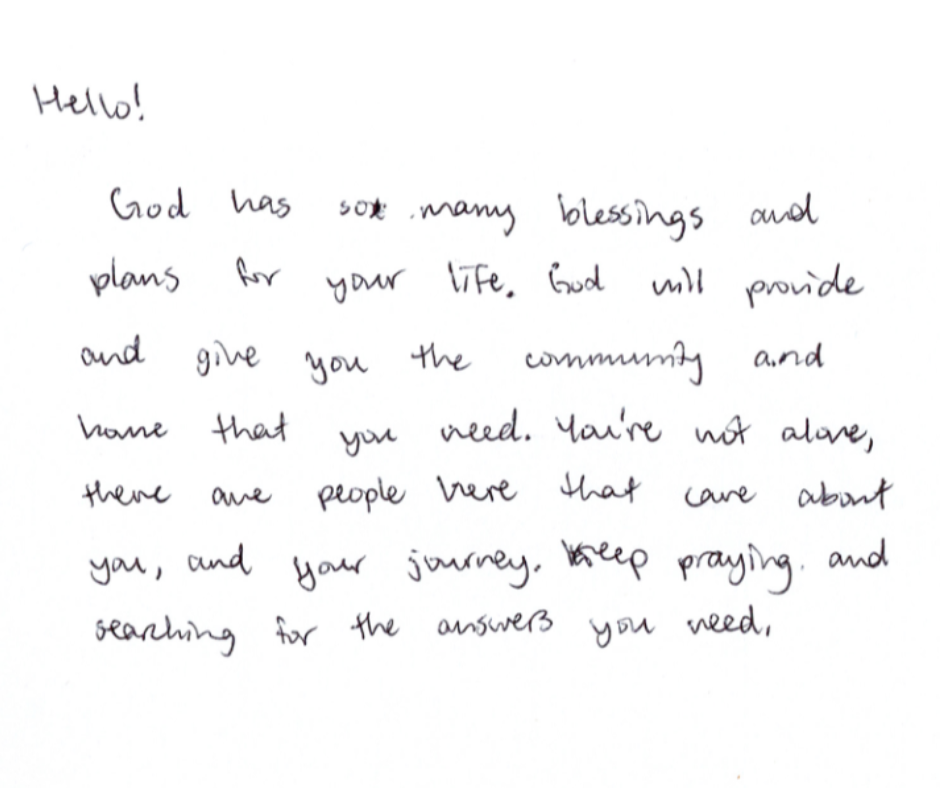 Hello!
God has so many blessings and
plans for your life. God will provide
and give you the community and
home that you need. You're not alone,
there are people here that care about
you, and your journey. Keep praying and
searching for the answers you need.